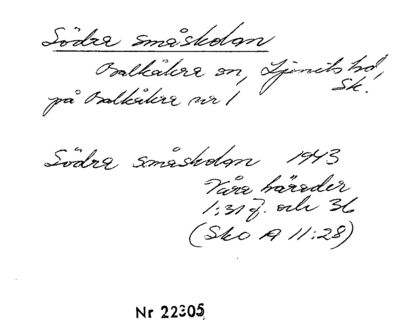 Södra småskolan
Balkåkra sn, Ljunits hd,
Sk.
på Balkåkra nr 1
Södra småskolan 1943
Våra härader
1:31 f. och 36
(Sko A 11:28)
Nr 22305